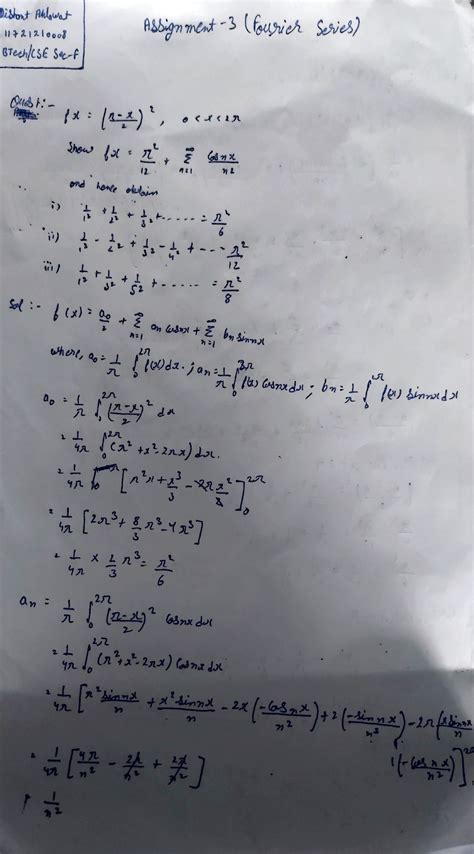 Assignment-3 (Fourier Series)
11721210008
BTech/CSE Sec-F
Quest:-
fx = (π-x/2)², 0<x<2π
Show fx = π²/12 + Σ_{n=1}^{∞} cosnx/n²
and hence obtain
i) 1/1² + 1/2² + 1/3² + ...... = π²/6
ii) 1/1² - 1/2² + 1/3² - 1/4² + --- π²/12
iii) 1/1² + 1/3² + 1/5² + ...... = π²/8
Sol :- f(x) = a₀/2 + Σ_{n=1}^{∞} an cosnx + Σ_{n=1}^{∞} bn sinnx
where, a₀ = 1/π ∫₀^{2π} f(x)dx ; an = 1/π ∫₀^{2π} f(x) cosnx dx ; bn = 1/π ∫₀^{π} f(x) sinnx dx
a₀ = 1/π ∫₀^{2π} (π-x/2)² dx
= 1/4π ∫₀^{2π} (π²+x²-2πx) dx.
= 1/4π [π²x + x³/3 - 2πx²/2]₀^{2π}
= 1/4π [2π³ + 8/3 π³ - 4π³]
= 1/4π × 2/3 π³ = π²/6
an = 1/π ∫₀^{2π} (π-x/2)² cosnx dx
= 1/4π ∫₀^{2π} (π²+x²-2πx) cosnx dx
= 1/4π [π² sinnx/n + x² sinnx/n - 2x(-cosnx/n²) + 2(-sinnx/n³) - 2π(x sinnx/n
1(-cosnx/n²)]
= 1/4π [4π/n² - 2/n² + 2/n²]
1/n²